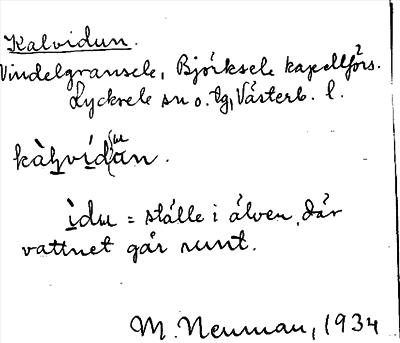 Kalvidun.
Vindelgransele, Björksele kapellförs.
Lycksele sn o. tg, Västerb. l.
kàl̠vi̠dan.
ìdu = ställe i älven, där
vattnet går runt.
M. Neuman, 1934